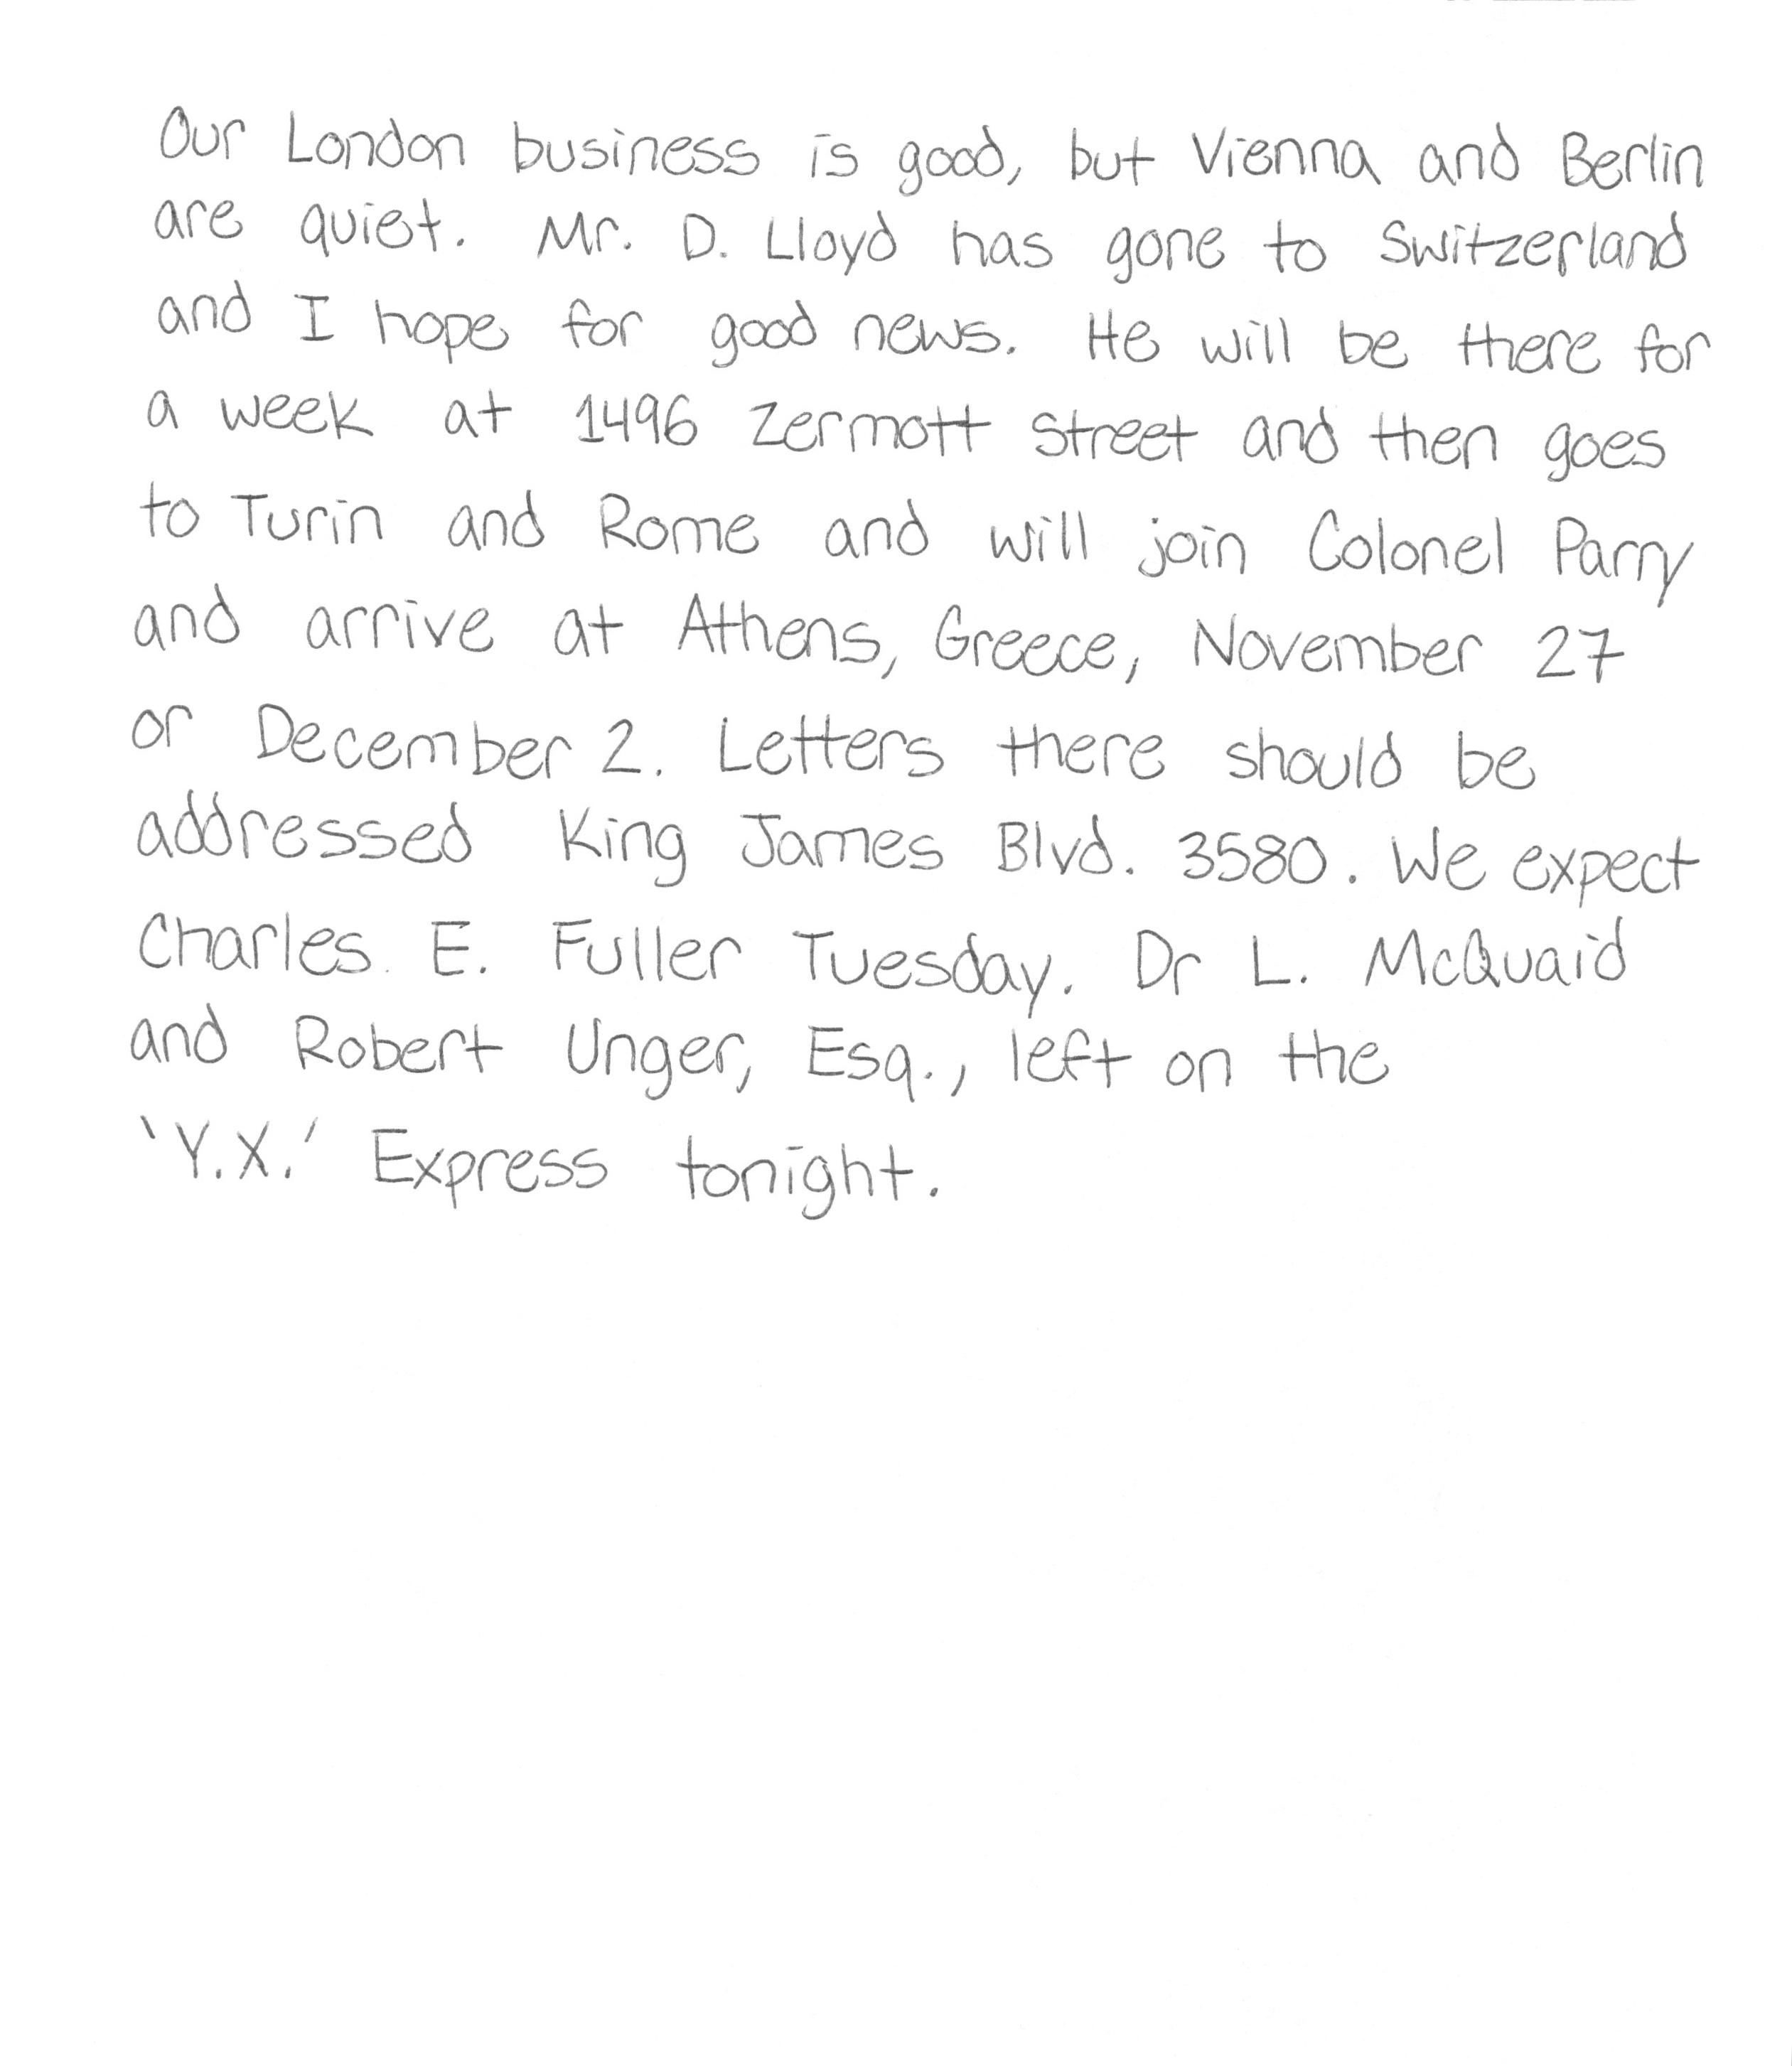 Our London business is good, but Vienna and Berlin
are quiet. Mr. D. Lloyd has gone to Switzerland
and I hope for good news. He will be there for
a week at 1496 Zermott Street and then goes
to Turin and Rome and will join Colonel Parry
and arrive at Athens, Greece, November 27
or December 2. Letters there should be
addressed King James Blvd. 3580. We expect
Charles E. Fuller Tuesday. Dr L. McQuaid
and Robert Unger, Esq., left on the
'Y.X.' Express tonight.